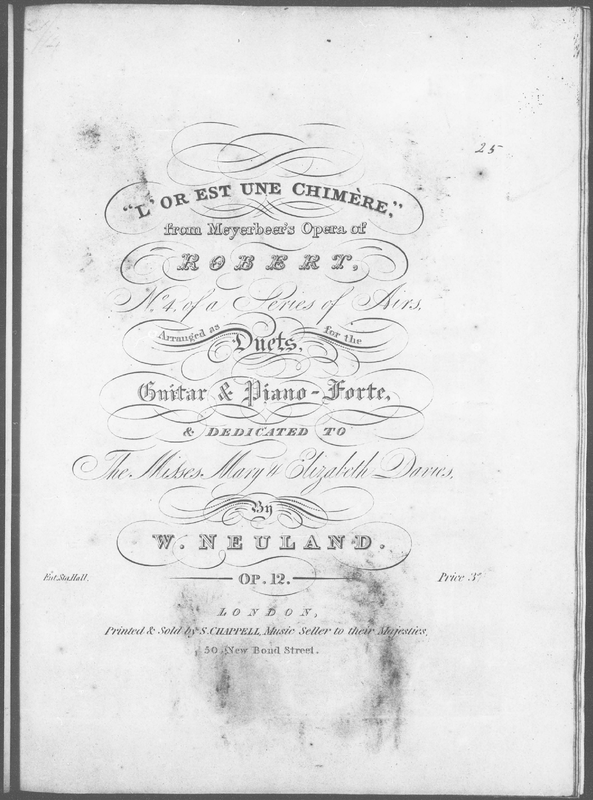 25
"L'OR EST UNE CHIMÈRE,"
from Meyerbeer's Opera of
ROBERT,
No. 4, of a Series of Airs,
Arranged as Duets, for the
Guitar & Piano-Forte,
& DEDICATED TO
The Misses Mary & Elizabeth Davies,
By
W. NEULAND.
Ent. Sta. Hall. OP. 12. Price 3/
LONDON,
Printed & Sold by S. CHAPPELL, Music Seller to their Majesties,
50, New Bond Street.